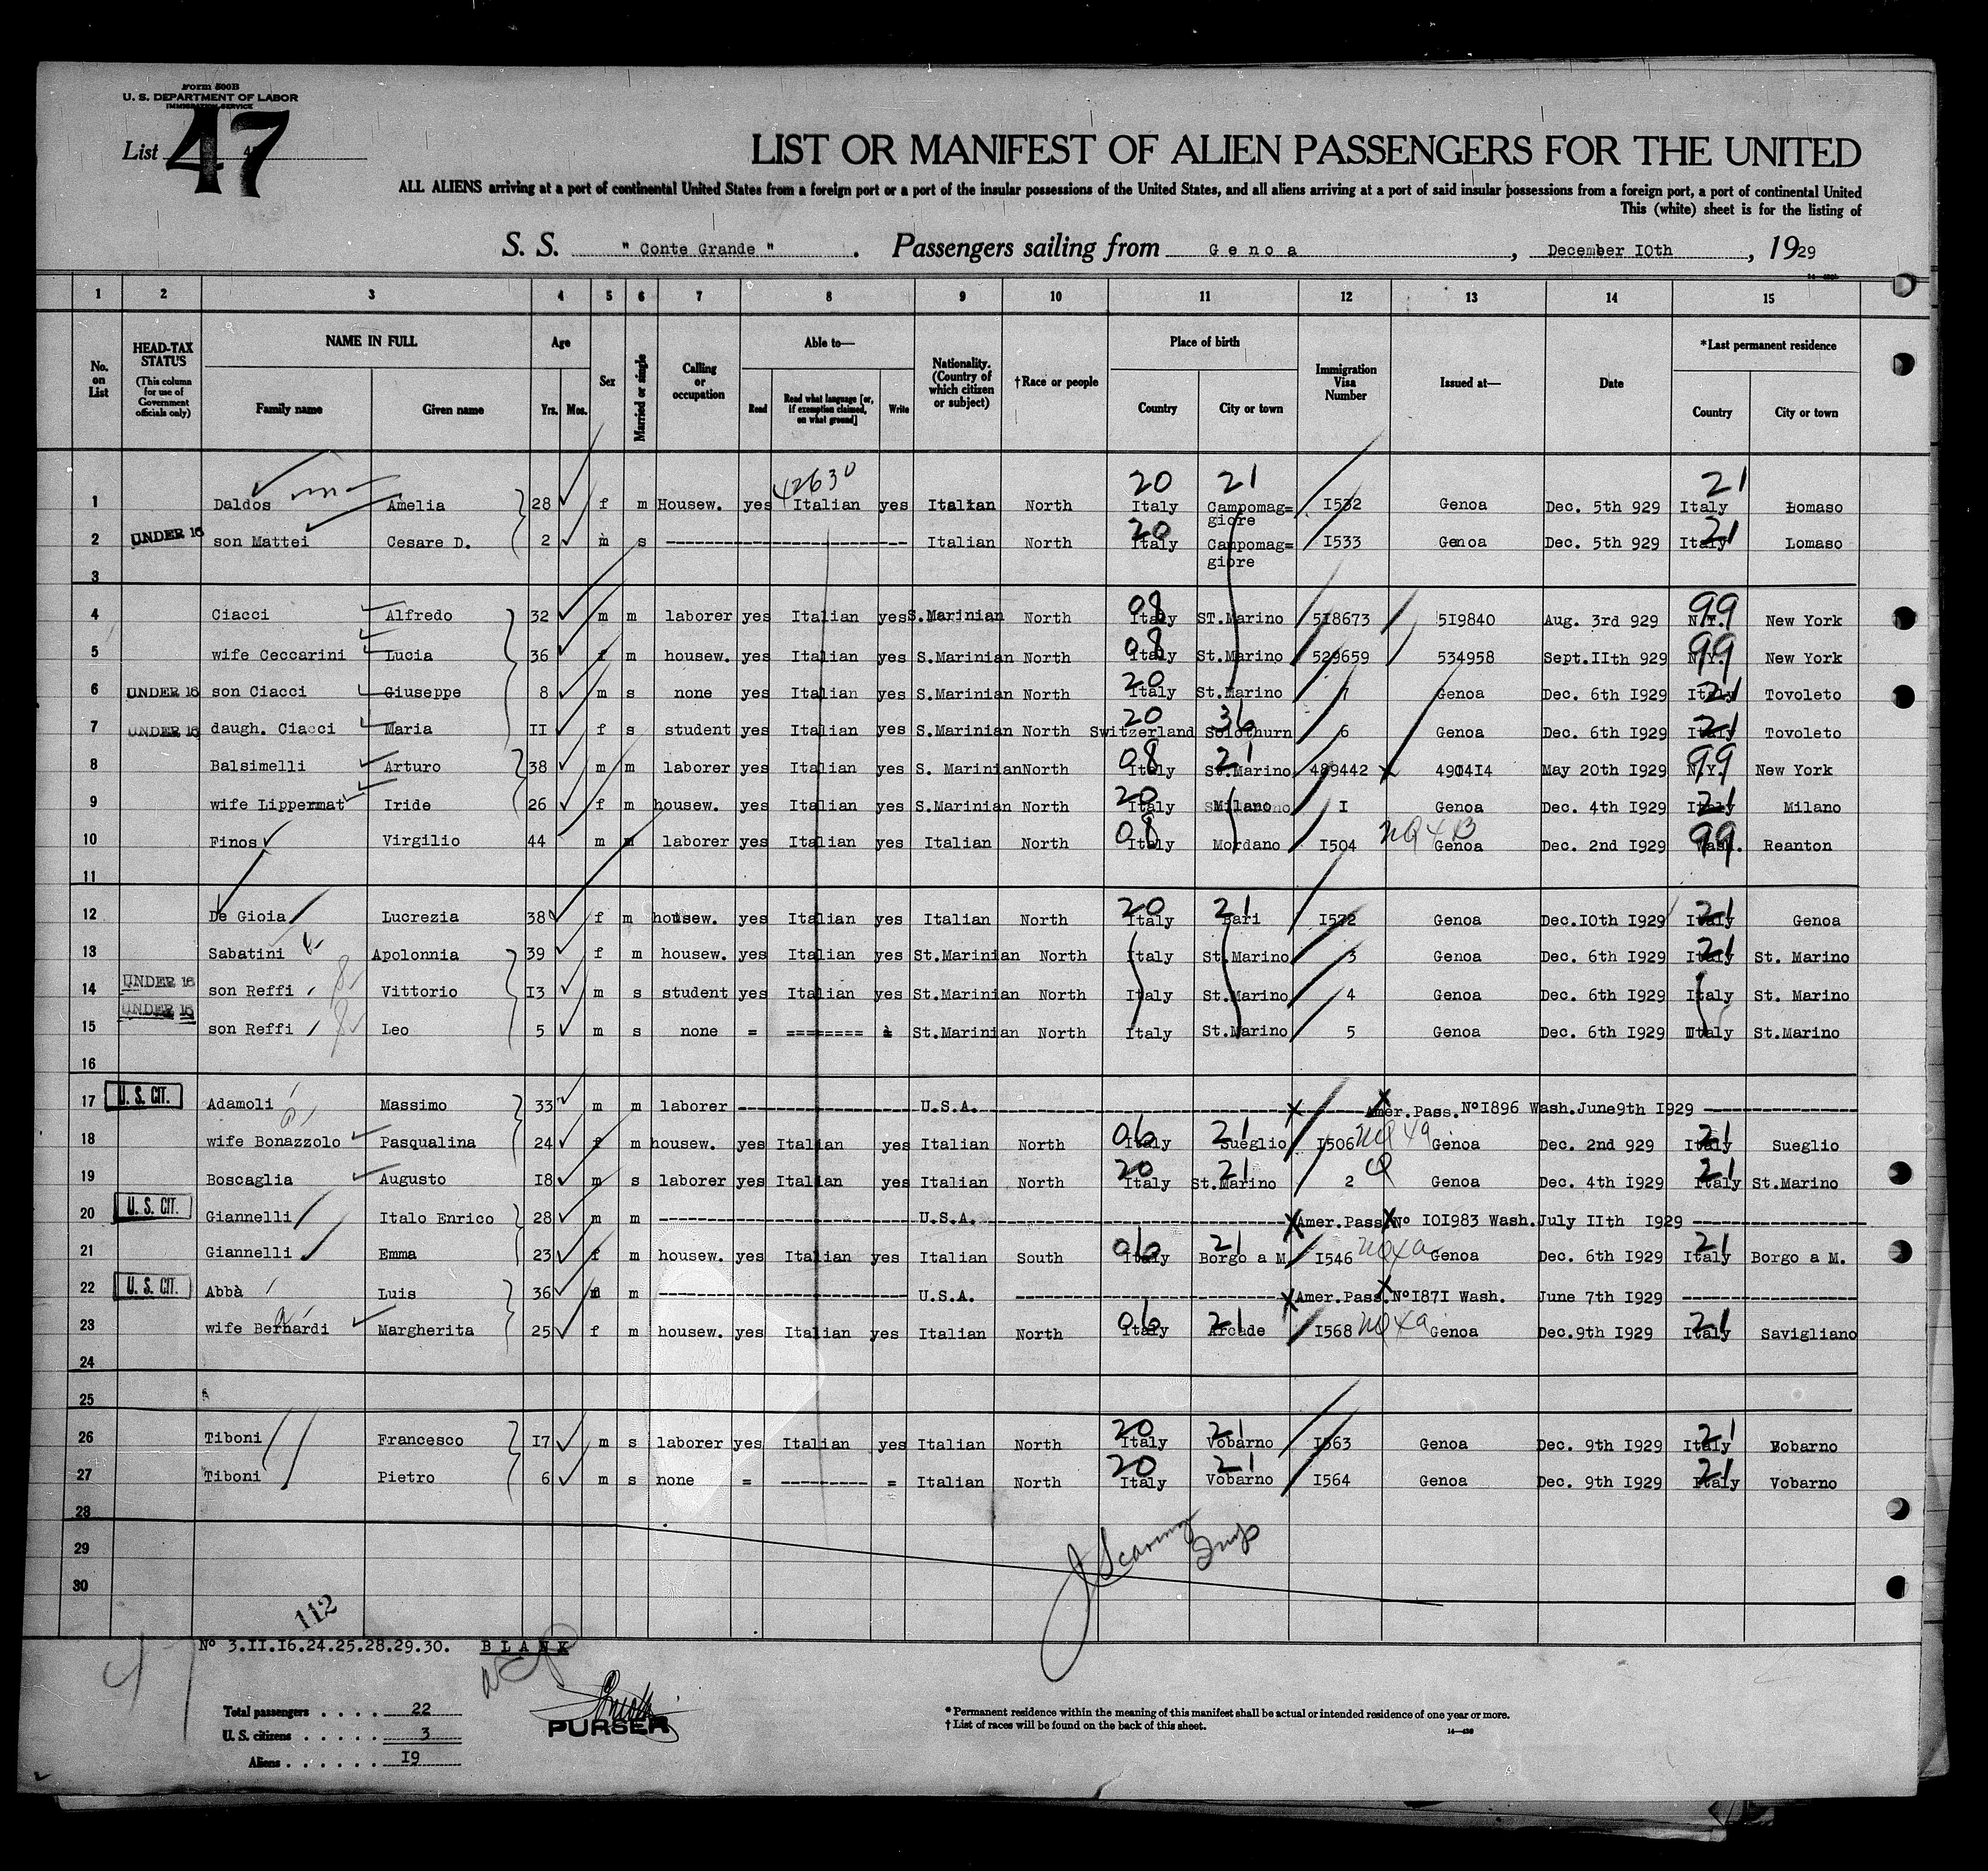 Form 500B
U. S. DEPARTMENT OF LABOR
IMMIGRATION SERVICE
List 47
LIST OR MANIFEST OF ALIEN PASSENGERS FOR THE UNITED
ALL ALIENS arriving at a port of continental United States from a foreign port or a port of the insular possessions of the United States, and all aliens arriving at a port of said insular possessions from a foreign port, a port of continental United
This (white) sheet is for the listing of
S. S. " Conte Grande " . Passengers sailing from Genoa , December I0th , 1929
1 2 3 4 5 6 7 8 9 10 11 12 13 14 15
No. on List
HEAD-TAX STATUS (This column for use of Government officials only)
NAME IN FULL Family name Given name
Age Yrs. Mos.
Sex
Married or single
Calling or occupation
Able to— Read Read what language [or, if exemption claimed, on what ground] Write
Nationality. (Country of which citizen or subject)
†Race or people
Place of birth Country City or town
Immigration Visa Number
Issued at—
Date
*Last permanent residence Country City or town
42630
20 21 21
1 Daldos Amelia 28 f m Housew. yes Italian yes Italian North Italy Campomag=giore I532 Genoa Dec. 5th 929 Italy Lomaso
20 21
2 UNDER 16 son Mattei Cesare D. 2 m s Italian North Italy Campomag=giore I533 Genoa Dec. 5th 929 Italy Lomaso
3
08 99
4 Ciacci Alfredo 32 m m laborer yes Italian yes S.Marinian North Italy ST.Marino 5I8673 5I9840 Aug. 3rd 929 N.Y. New York
08 99
5 wife Ceccarini Lucia 36 f m housew. yes Italian yes S.Marinian North Italy St.Marino 529659 534958 Sept.IIth 929 N.Y. New York
20 21
6 UNDER 16 son Ciacci Giuseppe 8 m s none yes Italian yes S.Marinian North Italy St.Marino 7 Genoa Dec. 6th I929 Italy Tovoleto
20 36 21
7 UNDER 16 daugh. Ciacci Maria II f s student yes Italian yes S.Marinian North Switzerland Solothurn 6 Genoa Dec. 6th I929 Italy Tovoleto
08 21 99
8 Balsimelli Arturo 38 m m laborer yes Italian yes S. Marinian North Italy St.Marino 489442 4904I4 May 20th I929 N.Y. New York
20 21
9 wife Lippermat Iride 26 f m housew. yes Italian yes S.Marinian North Italy Milano I Genoa Dec. 4th I929 Italy Milano
08 NQ 4B 99
10 Finos Virgilio 44 m m laborer yes Italian yes Italian North Italy Mordano I504 Genoa Dec. 2nd I929 Wash. Reanton
11
20 21 21
12 De Gioia Lucrezia 38 f m housew. yes Italian yes Italian North Italy Bari I572 Genoa Dec.I0th I929 Italy Genoa
21
13 Sabatini Apolonnia 39 f m housew. yes Italian yes St.Marinian North Italy St.Marino 3 Genoa Dec. 6th I929 Italy St. Marino
14 UNDER 16 son Reffi Vittorio I3 m s student yes Italian yes St.Marinian North Italy St.Marino 4 Genoa Dec. 6th I929 Italy St. Marino
15 UNDER 16 son Reffi Leo 5 m s none = ======== = St.Marinian North Italy St.Marino 5 Genoa Dec. 6th I929 Italy St.Marino
16
17 U. S. CIT. Adamoli Massimo 33 m m laborer U.S.A. Amer.Pass.Nº I896 Wash.June9th I929
06 21 NQ 4a 21
18 wife Bonazzolo Pasqualina 24 f m housew. yes Italian yes Italian North Italy Sueglio I506 Genoa Dec. 2nd 929 Italy Sueglio
20 21 Q 21
19 Boscaglia Augusto I8 m s laborer yes Italian yes Italian North Italy St.Marino 2 Genoa Dec. 4th I929 Italy St.Marino
20 U. S. CIT. Giannelli Italo Enrico 28 m m U.S.A. Amer.Pass.Nº I0I983 Wash.July IIth I929
06 21 NQ 4a 21
21 Giannelli Emma 23 f m housew. yes Italian yes Italian South Italy Borgo a M I546 Genoa Dec. 6th I929 Italy Borgo a M.
22 U. S. CIT. Abbà Luis 36 m m U.S.A. Amer.Pass.NºI87I Wash. June 7th I929
06 21 NQ 4a 21
23 wife Bernardi Margherita 25 f m housew. yes Italian yes Italian North Italy Arcade I568 Genoa Dec.9th I929 Italy Savigliano
24
25
20 21 21
26 Tiboni Francesco I7 m s laborer yes Italian yes Italian North Italy Vobarno I563 Genoa Dec. 9th I929 Italy Vobarno
20 21 21
27 Tiboni Pietro 6 m s none = --------- = Italian North Italy Vobarno I564 Genoa Dec. 9th I929 Italy Vobarno
28
29
30
112
47
Nº 3.II.I6.24.25.28.29.30. BLANK
PURSER
Total passengers . . . . 22
U. S. citizens . . . . . 3
Aliens . . . . . . I9
* Permanent residence within the meaning of this manifest shall be actual or intended residence of one year or more.
† List of races will be found on the back of this sheet.